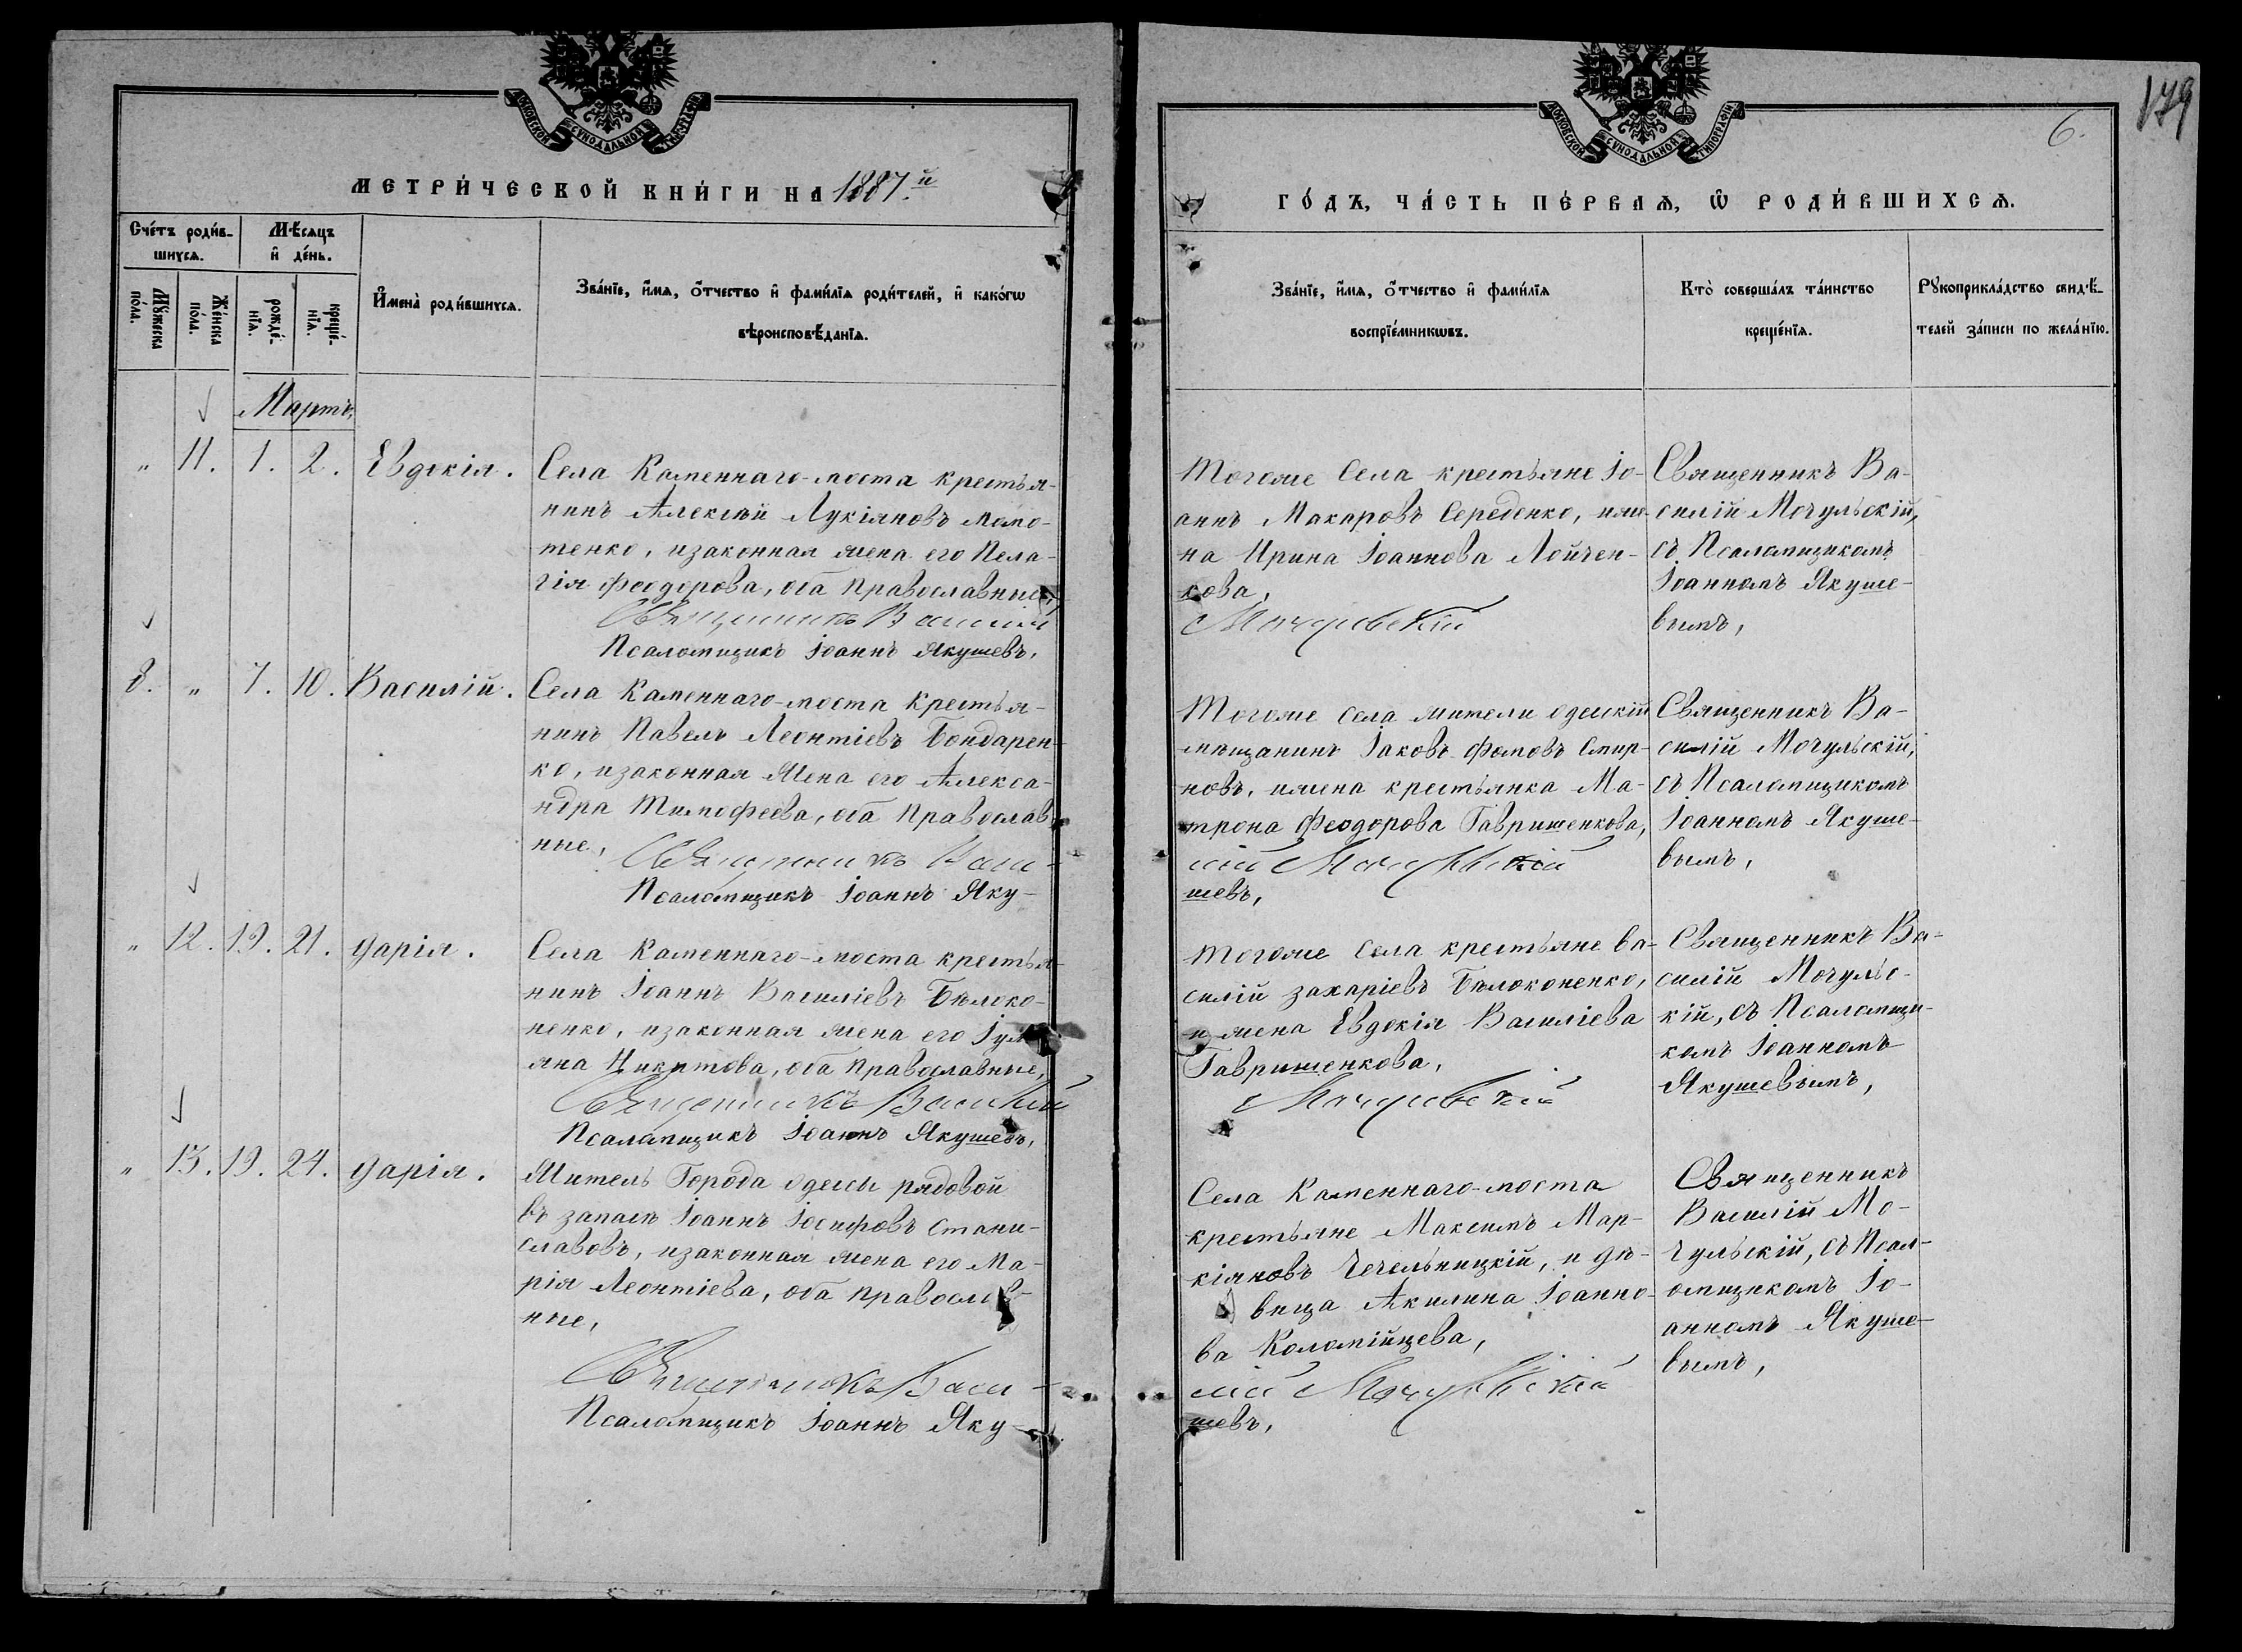 МОСКОВСКОЙ СѴНОДАЛЬНОЙ ТИПОГРАФІИ
МЕТРИ́ЧЕСКОЙ КНИ́ГИ НА 1887.й
Сче́тъ роди́в-
шихсѧ.
Мѣ́сѧцъ
и҆ де́нь.
Мꙋ́жеска
по́ла.
Же́нска
по́ла.
рожде́-
нїѧ.
креще́-
нїѧ.
И҆мена̀ роди́вшихсѧ.
Зва́нїе, и҆́мѧ, ѻ҆́тчество и҆ фами́лїѧ роди́телей, и҆ како́гѡ
вѣроисповѣ́данїѧ.
Мартъ.
" 11. 1. 2. Евдокія.
Села Каменнаго-моста крестья-
нинъ Алексѣй Лукіяновъ Момо-
тенко, изаконная жена его Пела-
гія Феодорова, оба Православные,
Священникъ Василій
Псаломщикъ Іоаннъ Якушевъ,
8. " 7. 10. Василій.
Села Каменнаго-моста крестья-
нинъ Павелъ Леонтіевъ Бондарен-
ко, изаконная Жена его Алекса-
ндра Тимофеева, оба Православ-
ные,
Священникъ Васи-
Псаломщикъ Іоаннъ Яку-
" 12. 19. 21. Дарія.
Села Каменнаго-моста крестья-
нинъ Іоаннъ Василіевъ Бѣлоко-
ненко, изаконная жена его Іули-
яна Никитова, оба Православные,
Священникъ Василій
Псаломщикъ Іоаннъ Якушевъ,
" 13. 19. 24. Дарія.
Житель Города Одессы рядовой
въ запасѣ Іоаннъ Іосифовъ Стани-
славовъ, изаконная жена его Ма-
рія Леонтіева, оба православ-
ные,
Священникъ Васи-
Псаломщикъ Іоаннъ Яку-
179
6.
МОСКОВСКОЙ СѴНОДАЛЬНОЙ ТИПОГРАФІИ
ГО́ДЪ, ЧА́СТЬ ПЕ́РВАѦ, Ѡ҆ РОДИ́ВШИХСѦ.
Зва́нїе, и҆́мѧ, ѻ҆́тчество и҆ фами́лїѧ
воспрїе́мникѡвъ.
Кто̀ соверша́лъ та́инство
креще́нїѧ.
Рꙋкоприкла́дство свидѣ́-
телей за́писи по жела́нїю.
Тогоже Села крестьяне Іо-
аннъ Макаровъ Середенко, иже-
на Ирина Іоаннова Лойчен-
кова,
Мочульскій
Священникъ Ва-
силій Мочульскій,
съ Псаломщикомъ
Іоанномъ Якуше-
вымъ,
Тогоже села жители одесскій
мѣщанинъ Іаковъ Фомовъ Смир-
новъ, ижена крестьянка Ма-
трона Феодорова Гавришенкова,
лій Мочульскій
шевъ,
Священникъ Ва-
силій Мочульскій,
съ Псаломщикомъ
Іоанномъ Якуше-
вымъ,
Тогоже села крестьяне Ва-
силій Захаріевъ Бѣлоконенко,
и жена Евдокія Василіева
Гавришенкова,
Мочульскій
Священникъ Ва-
силій Мочульс-
кій, съ Псаломщи-
комъ Іоанномъ
Якушевымъ,
Села Каменнаго-моста
крестьяне Максимъ Мар-
кіяновъ Чечельницкій, и дѣ-
вица Акилина Іоанно-
ва Коломійцева,
лій Мочульскій
шевъ,
Священникъ
Василій Мо-
чульскій, съ Псал-
омщикомъ Іо-
анномъ Якуше-
вымъ,